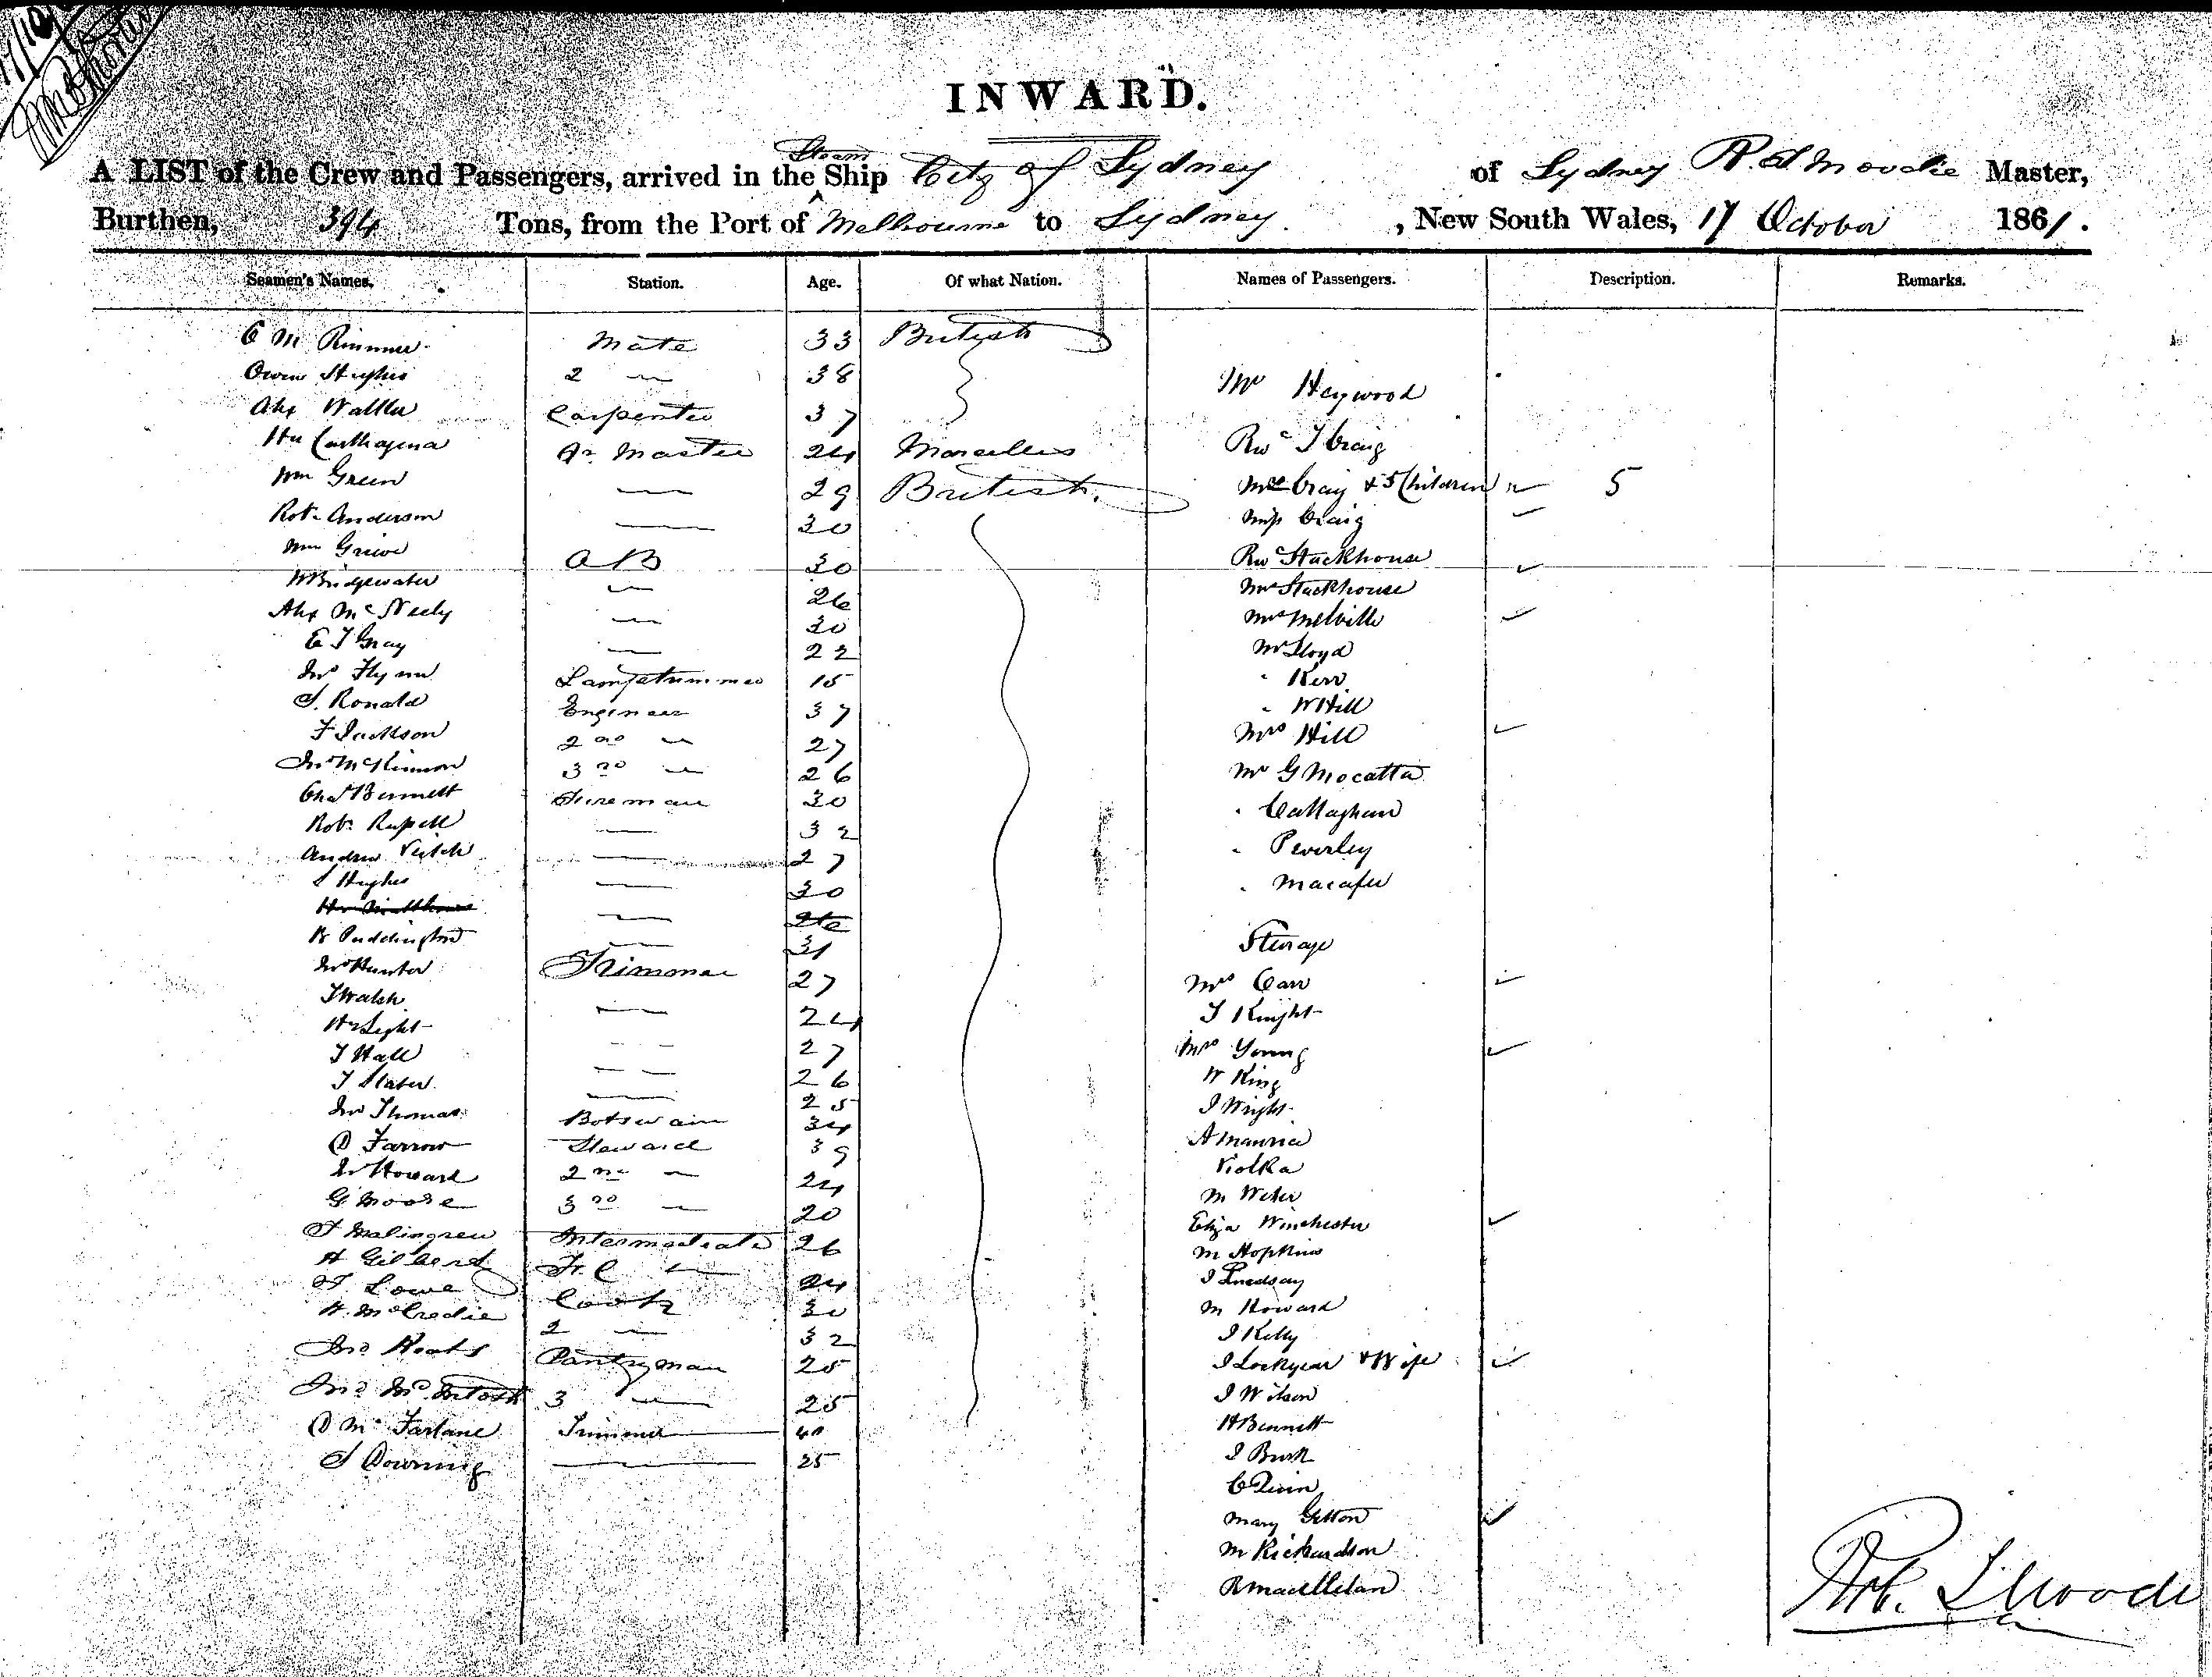 INWARD.
A LIST of the Crew and Passengers, arrived in the Steam Ship City of Sydney of Sydney R. S Moodie Master,
Burthen, 394 Tons, from the Port of Melbourne to Sydney, New South Wales, 17 October 1861.
Seamen's Names. Station. Age. Of what Nation. Names of Passengers. Description. Remarks.
C M Rimmer Mate 33 British
Owen Hughes 2 — 38
Mr Heywood
Alex Walker Carpenter 37
Hy Carthagena Qr. Master 24 Marseilles Revd J Craig
Wm Green — 29 British Mrs Craig & 5 Children 5
Robt Anderson — 30 Miss Craig
Wm Grieve AB 30 Revd Stackhouse
W Bridgewater — 26 Mrs Stackhouse
Alex McNeely — 30 Mrs Melville
E J Gray — 22 Mr Lloyd
Jno Flynn Lamptrimmer 15 " Kerr
J. Ronald Engineer 37 " W Hill
F Jackson 2nd — 27 Mrs Hill
Jno McKinnon 3rd — 26 Mr G Mocatta
Chas Bennett Fireman 30 " Callaghan
Robt Russell — 32 " Peverley
Andrew Veitch — 27
" Macafee
S Hughes — 30
— 26
B Puddington — 31 Steerage
Jno Hunter Trimmer 27 Mrs Carr
J Walsh — 24 J Knight
Hy Light — 27 Mrs Young
J Hall — 26 W King
J Slater — 25 J Wright
Jno Thomas Botswain 34 A Maurice
D Farrow Steward 39
Jno Howard 2nd — 24 M Weber
G Moore 3rd — 20 Eliza Winchester
Intermediate 26 M Hopkins
H Gilberd Fr. C — 24 J Lindsay
J Lowe Cook 30 M Howard
H. McCredie 2 — 32 J Kelly
Jno Keats Pantryman 25 J Lockyear & Wife
Jno McIntosh 3 — 25 J Wilson
D McFarlane Trimmer 40 H Bennett
J Downing — 25 J Bush
C Quin
Mary Getton
M Richardson
R Macllelan
Rob. S Moodie